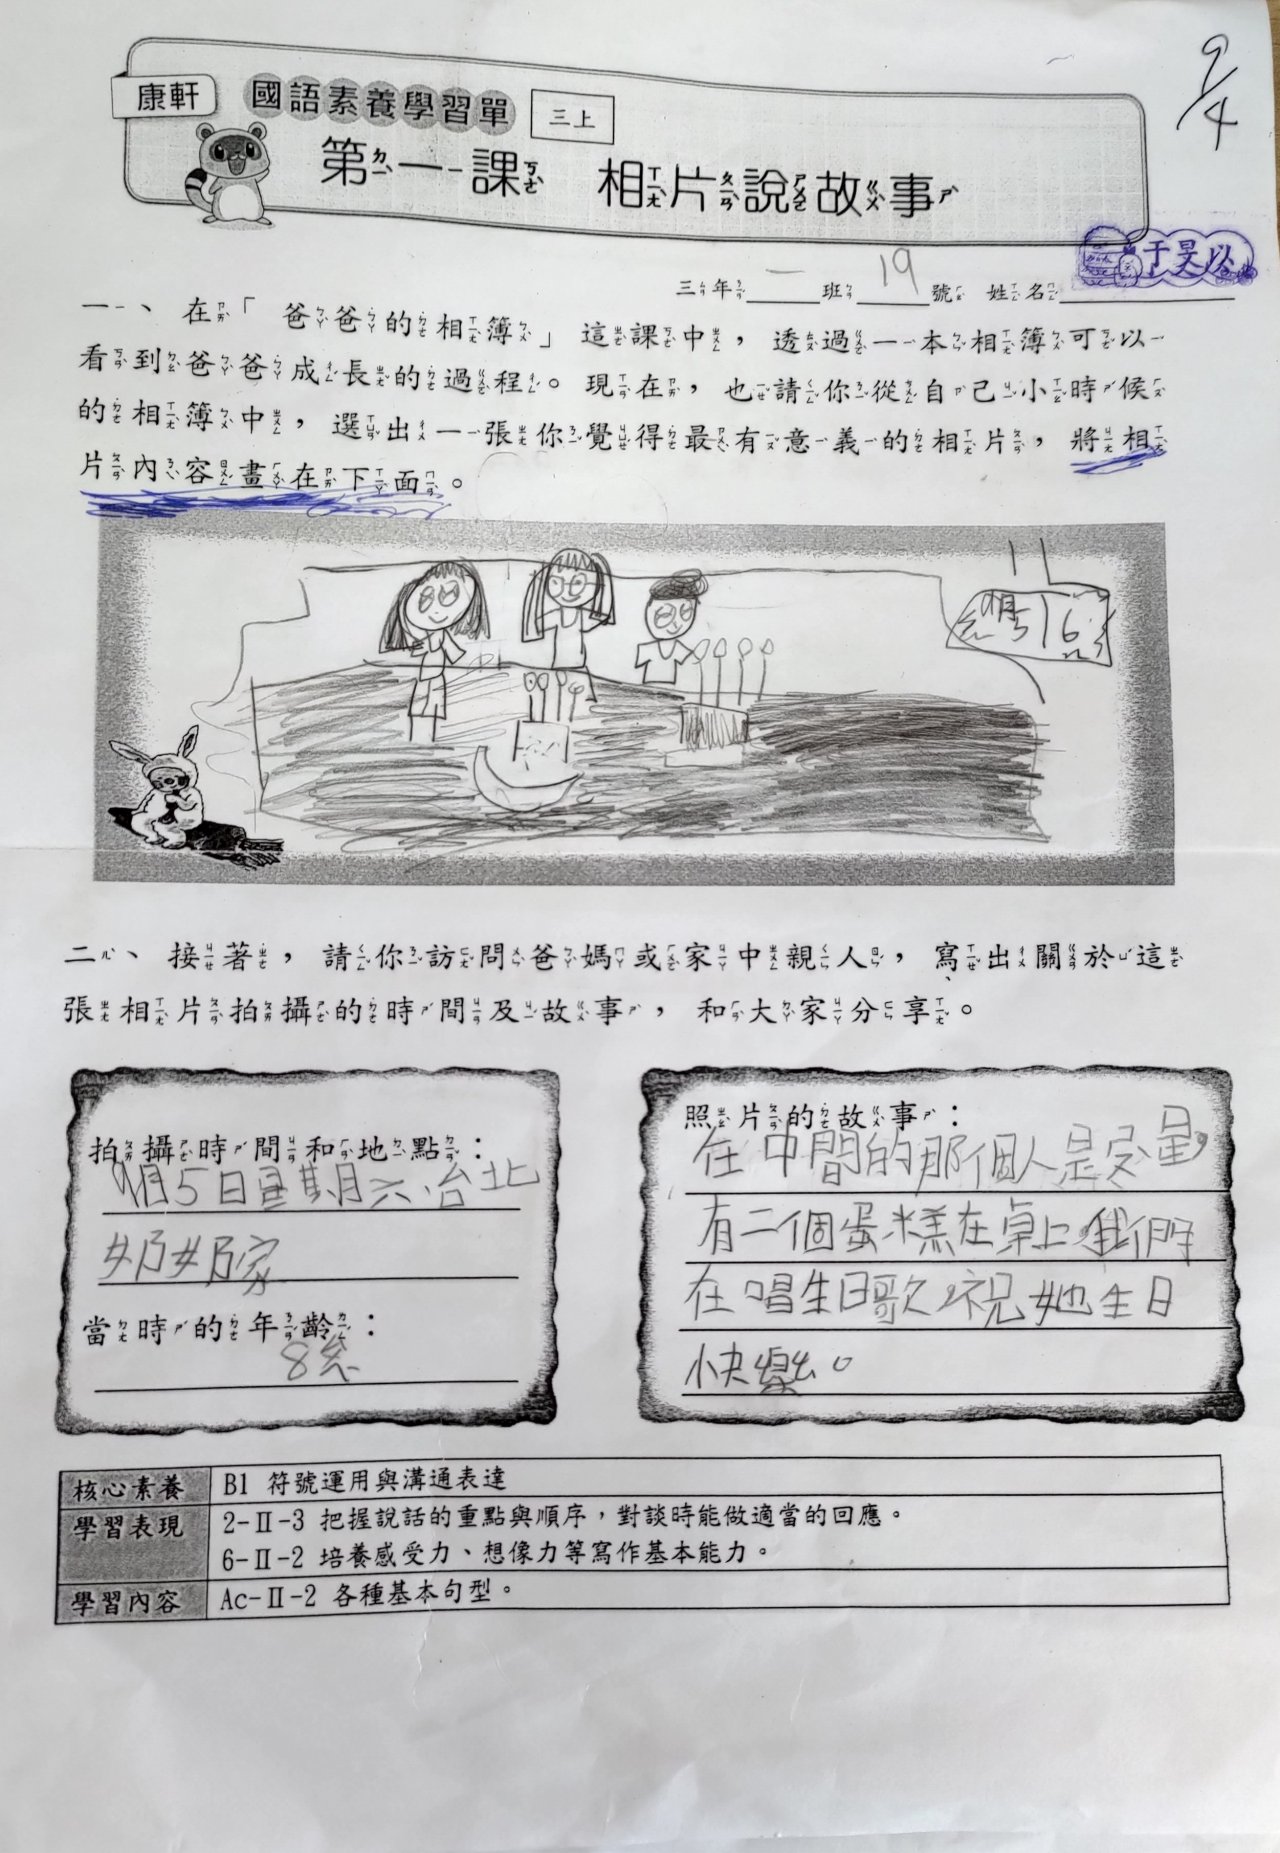 9/4
康軒
國語素養學習單 三上
第一課 相片說故事
三年一班19號 姓名于旻以
一、在「爸爸的相簿」這課中，透過一本相簿可以
看到爸爸成長的過程。現在，也請你從自己小時候
的相簿中，選出一張你覺得最有意義的相片，將相
片內容畫在下面。
二、接著，請你訪問爸媽或家中親人，寫出關於這
張相片拍攝的時間及故事，和大家分享。
拍攝時間和地點：
9月5日星期六台北
奶奶家
當時的年齡：
8歲
照片的故事：
在中間的那個人是安量，
有二個蛋糕在桌上我們
在唱生日歌祝她生日
快樂。
核心素養 B1 符號運用與溝通表達
學習表現 2-Ⅱ-3 把握說話的重點與順序，對談時能做適當的回應。
6-Ⅱ-2 培養感受力、想像力等寫作基本能力。
學習內容 Ac-Ⅱ-2 各種基本句型。